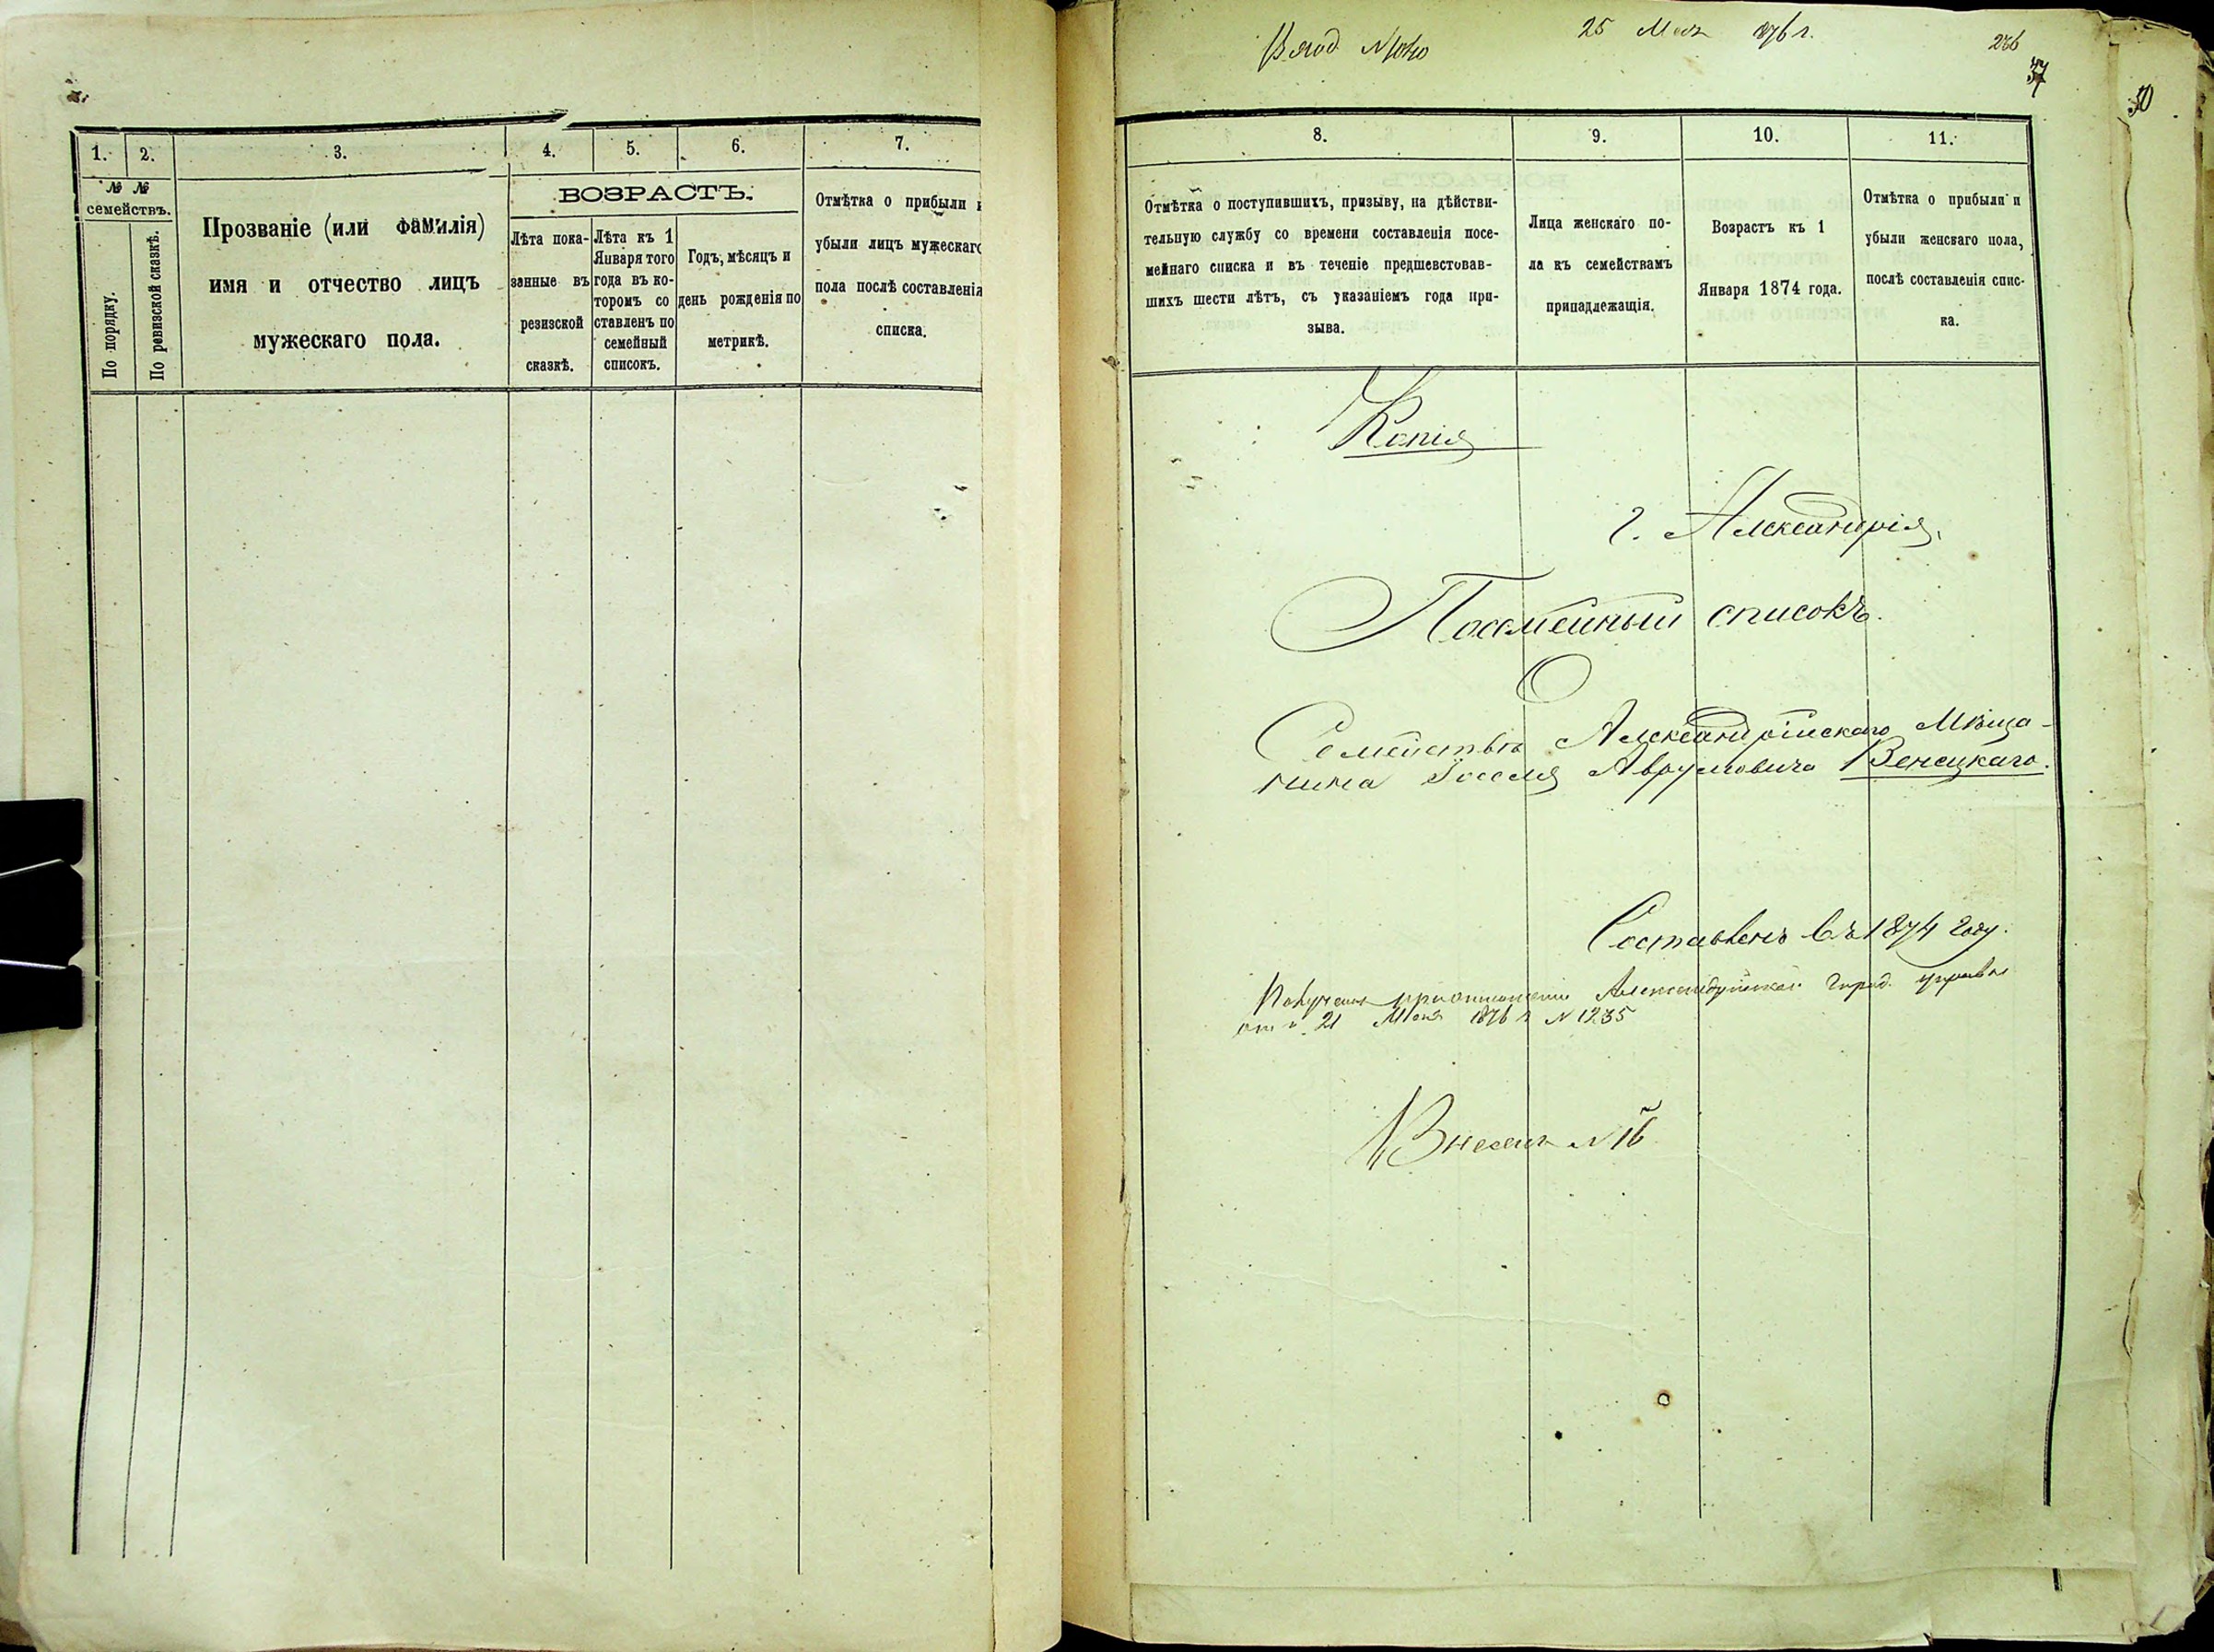 1.
2.
3.
4.
5.
6.
7.
№ №
семействъ.
По порядку.
По ревизской сказкѣ.
Прозваніе (или фамилія)
имя и отчество лицъ
мужескаго пола.
ВОЗРАСТЪ.
Лѣта пока-
занные въ
резизской
сказкѣ.
Лѣта къ 1
Января того
года въ ко-
торомъ со
ставленъ по
семейный
списокъ.
Годъ, мѣсяцъ и
день рожденія по
метрикѣ.
Отмѣтка о прибыли
убыли лицъ мужескаго
пола послѣ составленія
списка.
25 Мая 876 г.
37
30
8.
9.
10.
11.
Отмѣтка о поступившихъ, призыву, на дѣйстви-
тельную службу со времени составленія посе-
мейнаго списка и въ теченіе предшевствовав-
шихъ шести лѣтъ, съ указаніемъ года при-
зыва.
Лица женскаго по-
ла къ семействамъ
принадлежащія.
Возрастъ къ 1
Января 1874 года.
Отмѣтка о прибыли и
убыли женскаго пола,
послѣ составленія спис-
ка.
Копія
г. Александрія.
Посемейный списокъ.
О
Семействѣ Александрійскаго Мѣща-
нина Іоселя Аврумовича Венецкаго.
Составленъ въ 1874 году.
Получена при отношеніи Александрійской город. управы
отъ 21 Мая 1876 г. N 1235
Внесенъ N 16